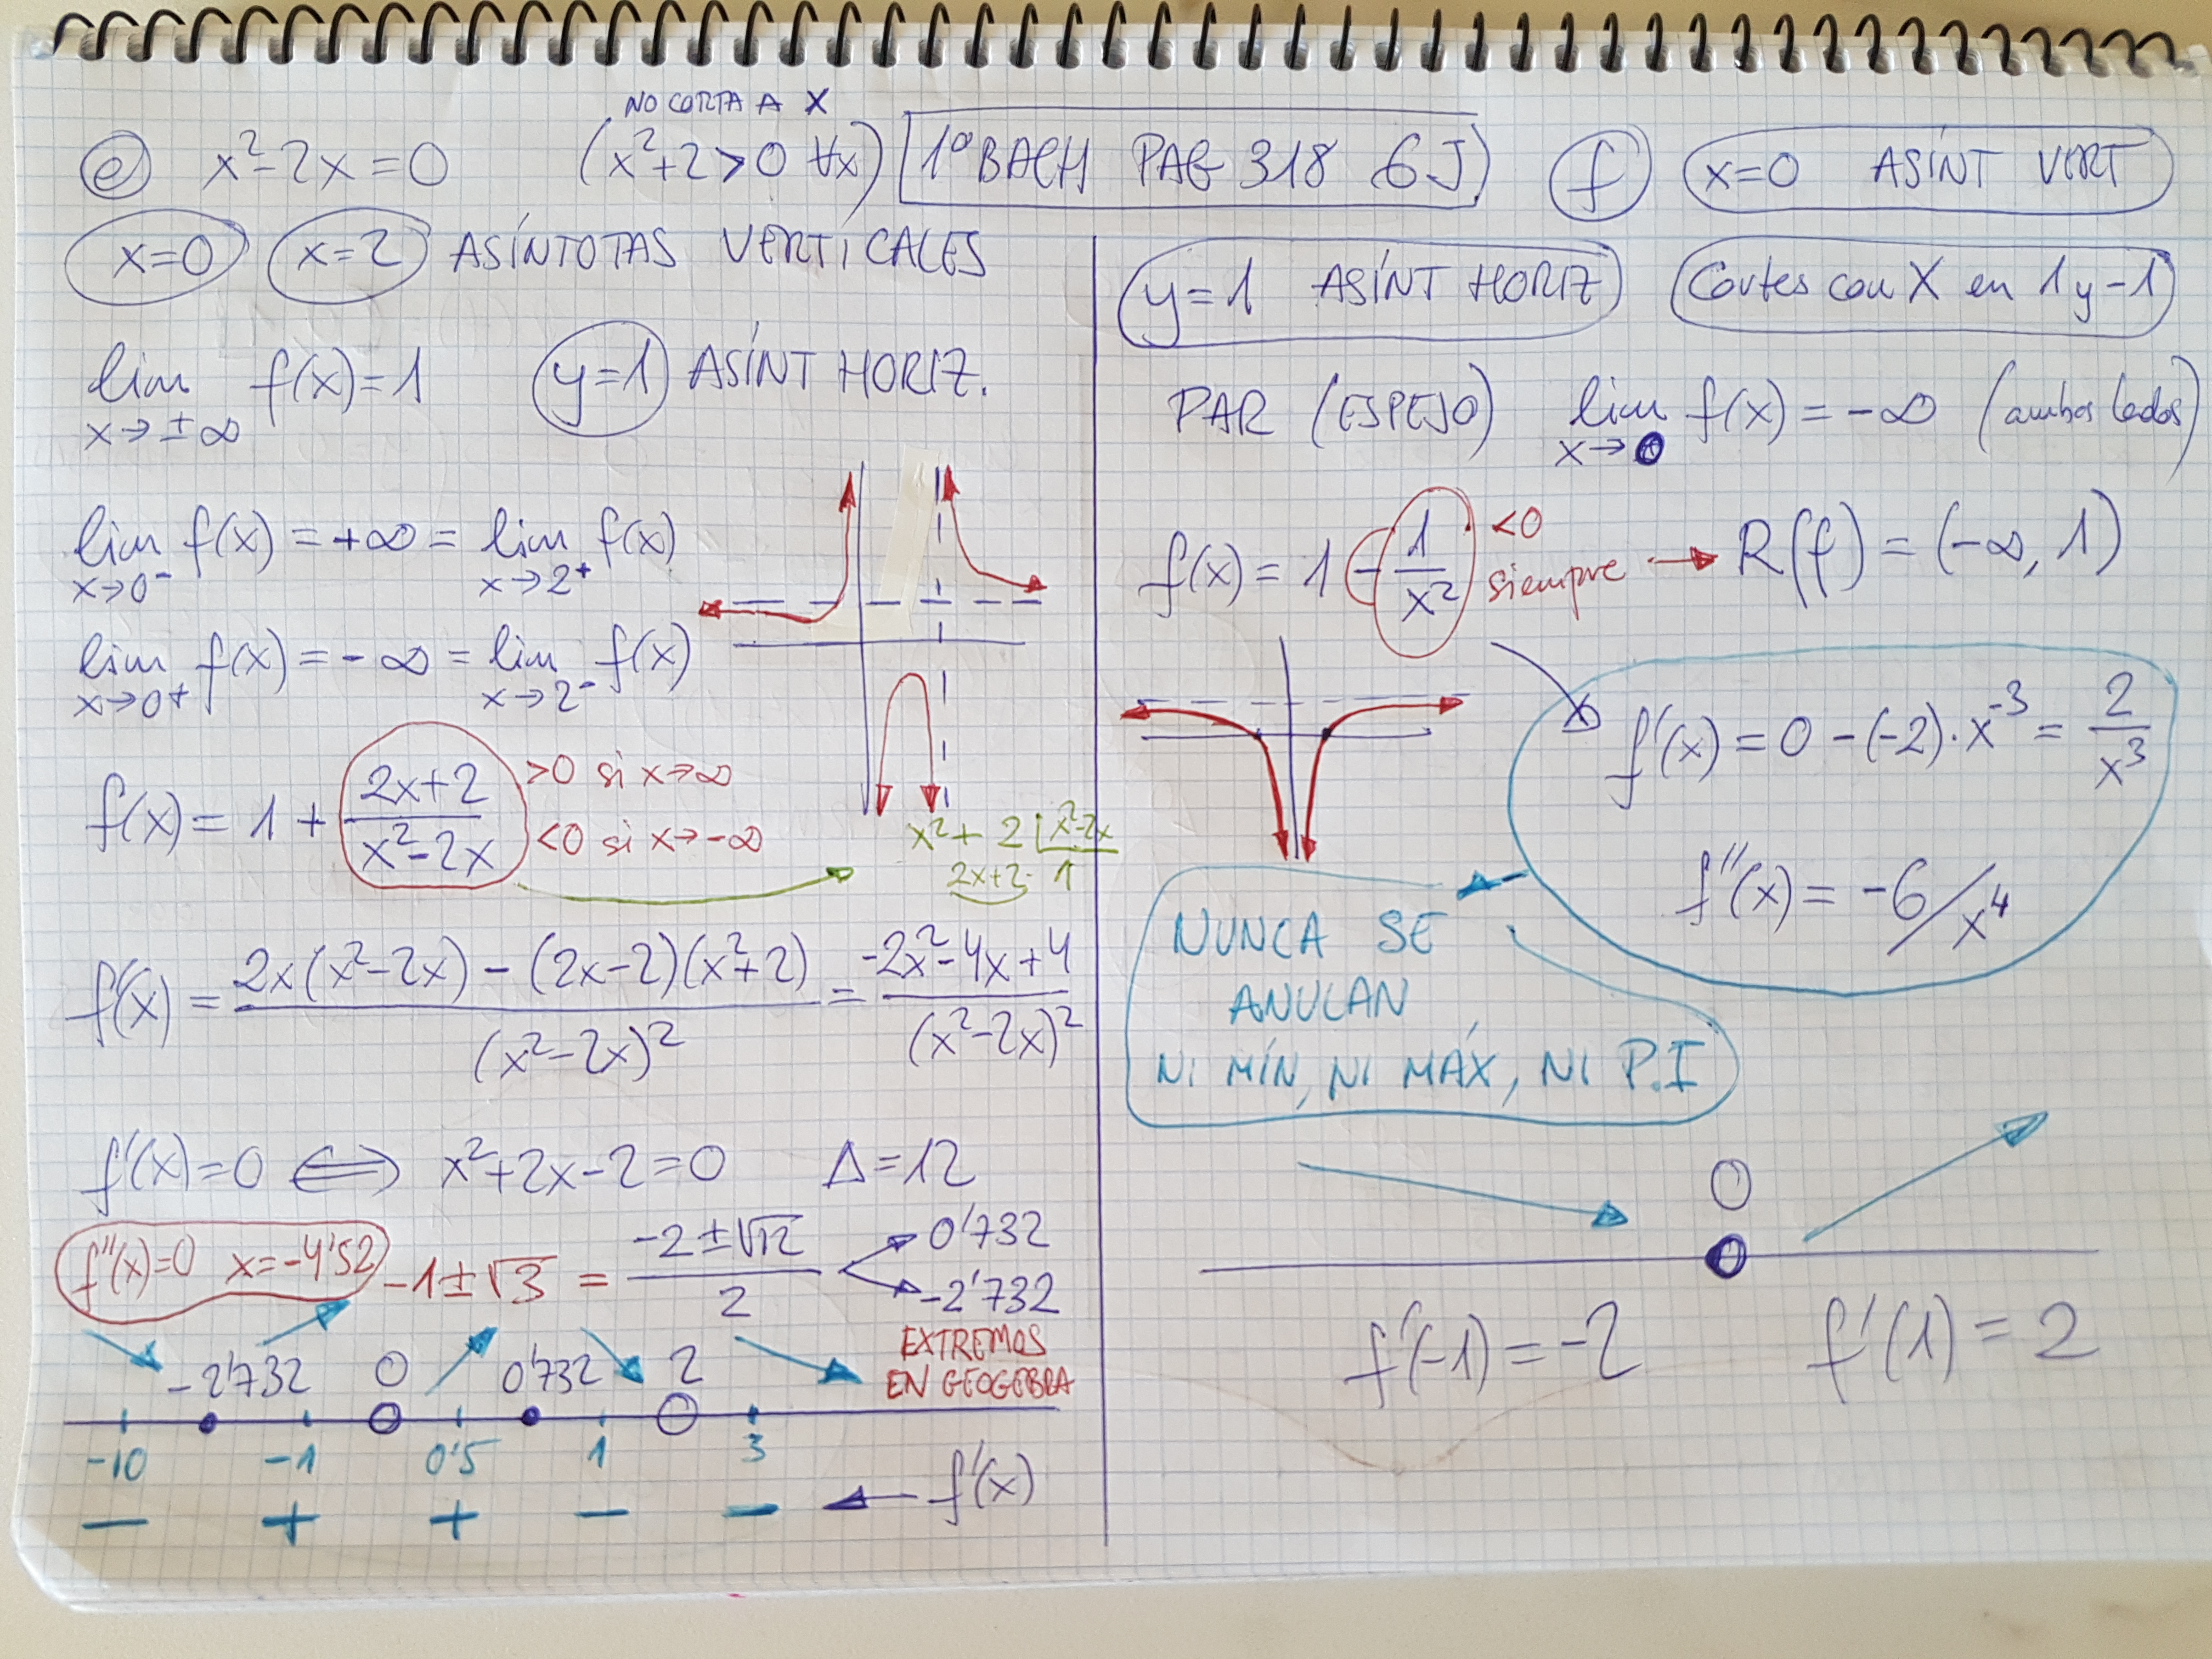 NO CORTA A X
ⓔ x²-2x=0 (x²+2>0 ∀x)
1º BACH PAG 318 6J
x=0 x=2 ASÍNTOTAS VERTICALES
lim x→±∞ f(x)=1 y=1 ASÍNT HORIZ.
lim x→0⁻ f(x)=+∞= lim x→2⁺ f(x)
lim x→0⁺ f(x)=-∞= lim x→2⁻ f(x)
f(x)=1+ (2x+2)/(x²-2x) >0 si x→∞
<0 si x→-∞
x²+2 | x²-2x
2x+2 1
f'(x)= (2x(x²-2x)-(2x-2)(x²+2))/(x²-2x)² = (-2x²-4x+4)/(x²-2x)²
f'(x)=0 ⟺ x²+2x-2=0 Δ=12
f''(x)=0 x=-4'52
-1±√3 = (-2±√12)/2 0'732
-2'732
EXTREMOS
EN GEOGEBRA
-2'732 0 0'732 2
-10 -1 0'5 1 3
— + + — — ← f'(x)
ⓕ x=0 ASÍNT VERT
y=1 ASÍNT HORIZ Cortes con X en 1 y -1
PAR (ESPEJO) lim x→0 f(x)=-∞ (ambos lados)
f(x)=1-1/x² <0 siempre → R(f)=(-∞,1)
f'(x)=0-(-2)·x⁻³= 2/x³
f''(x)=-6/x⁴
NUNCA SE
ANULAN
NI MÍN, NI MÁX, NI P.I
0
f'(-1)=-2 f'(1)=2